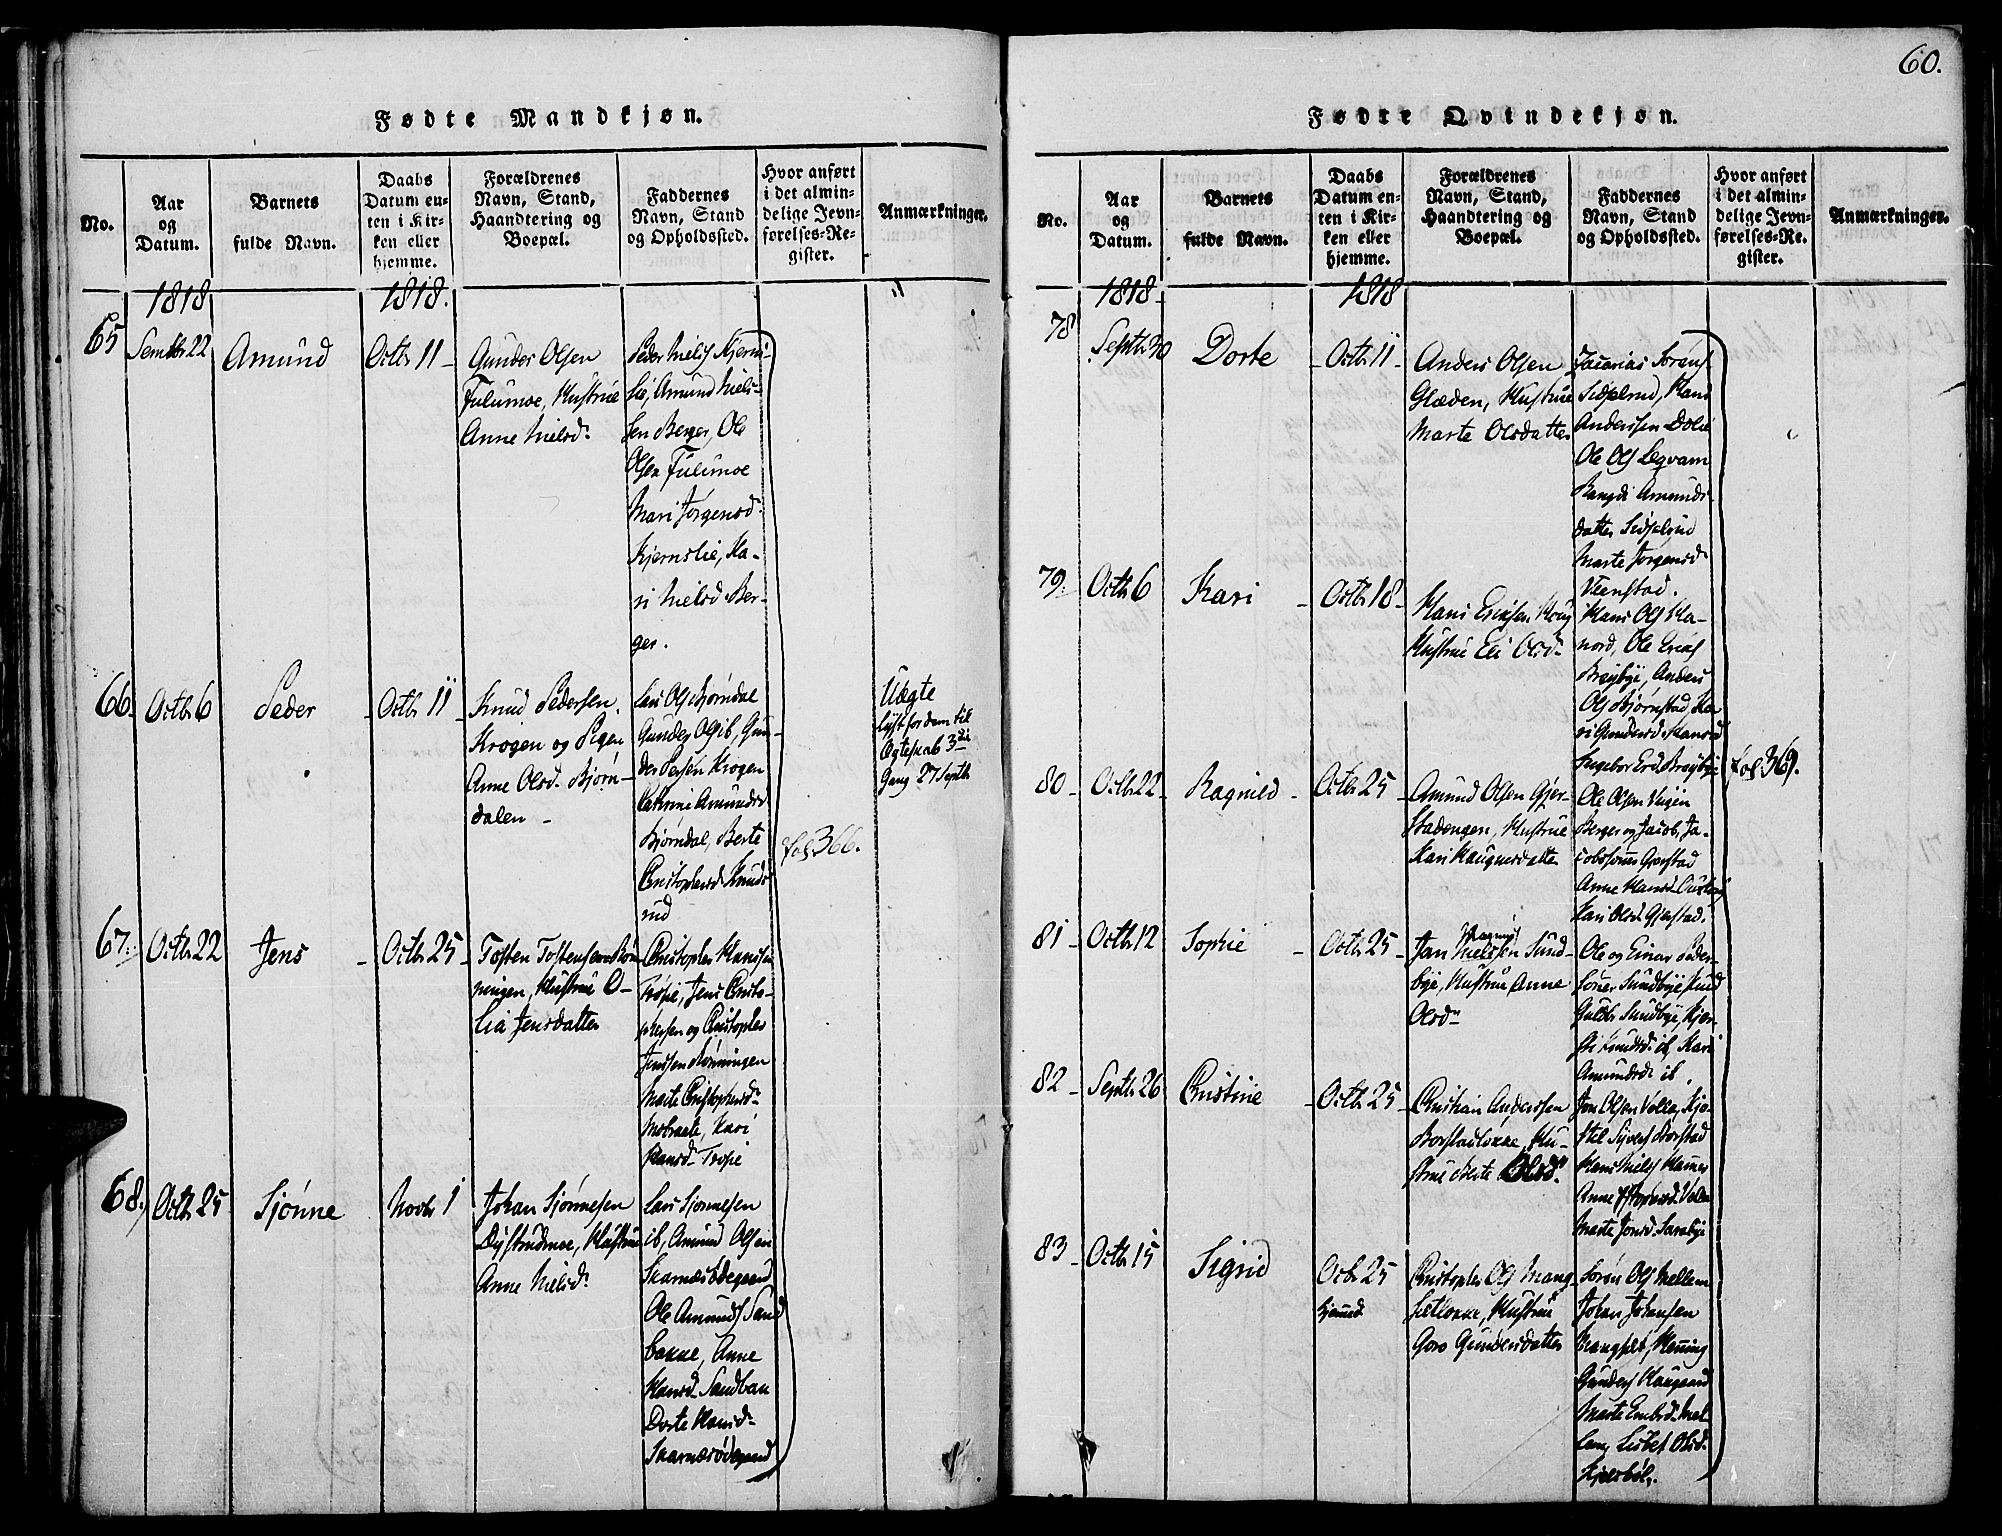 60.
Fødte Mandkjøn.
No.
Aar
og
Datum.
Barnets
fulde Navn.
Daabs
Datum en-
ten i Kir-
ken eller
hjemme.
Forældrenes
Navn, Stand,
Haandtering og
Boepæl.
Faddernes
Navn, Stand
og Opholdssted.
Hvor anført
i det almin-
delige Jevn-
førelses-Re-
gister.
Anmærkninger.
1818
1818.
65
22
Amund
Octbr 11
Gunder Olsen
Fulumoe, Hustrue
Anne Nielsd.
Peder Niels Kjerns-
lie, Amund Niel-
sen Berger, Ole
Olsen Fulumoe
Mari Jørgensd.
Kjernslie, Ka-
ri Nielsd. Ber-
ger.
66
Octbr 6
Peder
Octbr 11
Knud Pedersen
Krogen og Pigen
Anne Olsd. Bjørn-
dalen
Lars Ols Bjørndal
Gunder Ols ib, Gun-
der Persen Krogen
Cathrine Amundsd
Bjørndal, Berte
Christophersd. Knuds
rud
Uægte
lyst for dem til
Egteskab 3die
Gang 27 Septb
fol. 366.
67.
Octbr 22
Jens
Octbr 25
Tosten Tostensen Røn-
ningen, Hustrue O-
lia Jensdatter
Christopher Hansen
Tropie, Jens Christo-
phersen og Christopher
Jensen Rønningen
Marte Christophersd.
Mobraate, Kari
Hansd. Tropie
68.
Octbr 25
Sjønne
Novbr 1
Johan Sjønnesen
Dystrudmoe, Hustrue
Anne Nielsd.
Lars Sjønnesen
ib, Amund Olsen
Skarnæsødegaard
Ole Amunds Sand
bakke, Anne
Hansd. Sandbak
Dorte Hansd.
Skarnæsødegaard
Fødte Qvindekjøn.
No.
Aar
og
Datum.
Barnets
fulde Navn.
Daabs
Datum en-
ten i Kir-
ken eller
hjemme.
Forældrenes
Navn, Stand,
Haandtering og
Boepæl.
Faddernes
Navn, Stand
og Opholdssted.
Hvor anført
i det almin-
delige Jevn-
førelses-Re-
gister.
Anmærkninger.
1818
1818
78
Septbr 30
Dorte
Octbr 11
Anders Olsen
Glæden, Hustrue
Marte Olsdatter
Zacarias Sørens
Sidselrud, Hans
Anderssen Dolie
Ole Ols Leqvam
Rangdi Amunds
datter Sidselrud
Marte Jørgensd.
Veenstad.
79.
Octbr 6
Kari
Octbr 18
Hans Ericksen
Hustrue Eli Olsd.
Hans Ols Ka-
nord, Ole Ericks
Brøybye, Anders
Ols Bjørnstad, Ka-
ri Gundersd. Kanord
Ingebor Ericksd. Brøybye
fol. 369.
80
Octbr 22
Ragnild
Octbr 25
Amund Olsen Gjer-
stadengen, Hustrue
Kari Haagensdatter
Ole Olsen Veien
Berger og Jacob, Ja-
cobsønner Gjerstad
Anne Hansd.
Kari Olsd. Gjerstad.
81
Octbr 12
Sophie
Octbr 25
Jan Magnus
Nielssen Sund-
bye, Hustrue Anne
Olsd.
Ole og Einar Peder-
sønner Sundbye, Knud
Guldbr Sundbye, Kjer-
sti Knudsd. ib, Kari
Amundsd. ib.
82
Septbr 26
Christine
Octbr 25
Christian Anderssen
Borstadløkke, Hu-
strue Berte Olsd.
Jon Olsen Volla, Kjø-
stel Sivers Borstad
Hans Niels Hamer
Anne Christophersd. Volla
Marte Jonsd. Saxebye
83
Octbr 15
Sigrid
Octbr 25
hjemmed.
Christopher Ols Mang-
setløkke, Hustrue
Goro Gundersdatter
Søren Ols Mellem
Johan Johansen
Mangset, Henning
Gunders Haugaard
Marte Embrd. Mel-
lem, Lisbet Olsd.
Kjelsbøl.